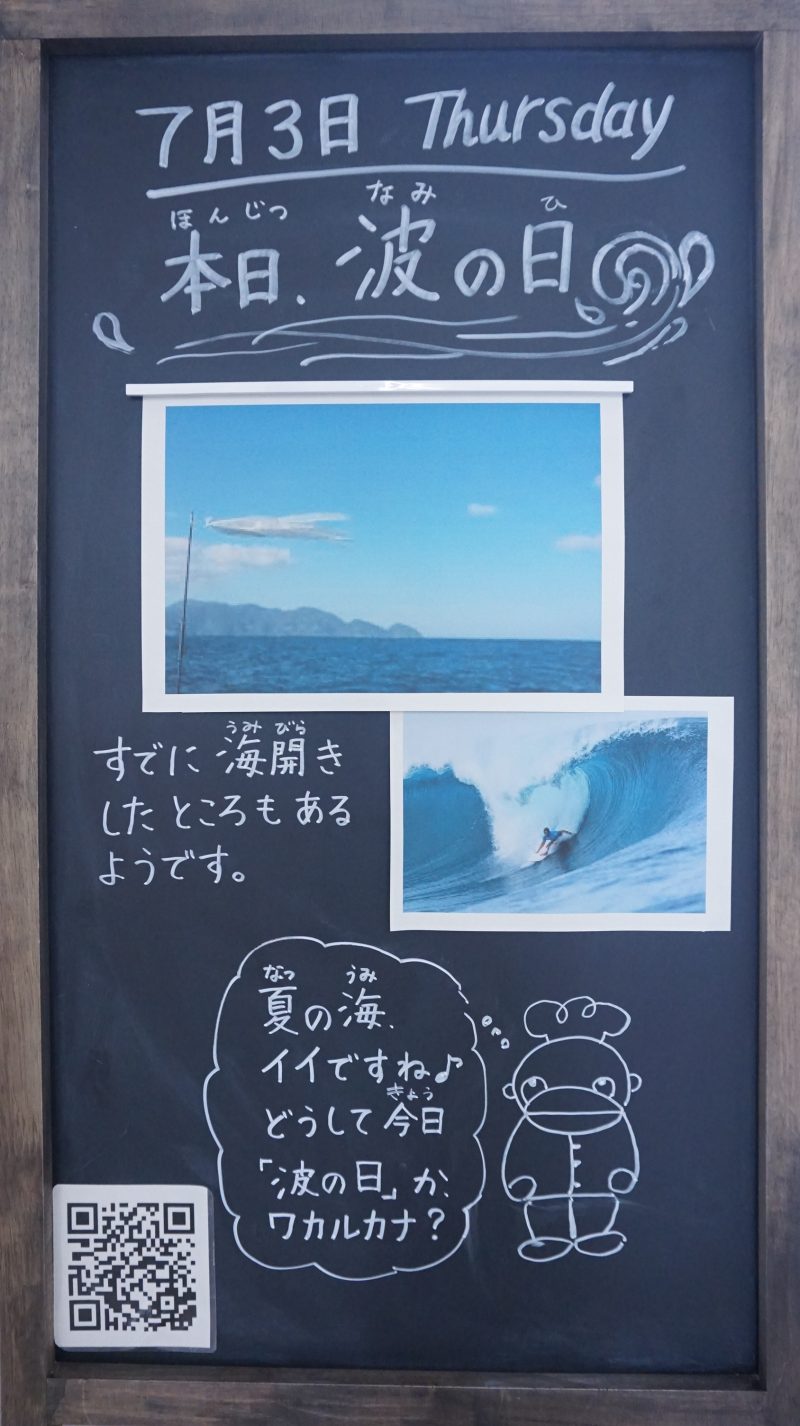 7月3日 Thursday
ほんじつ なみ ひ
本日、波の日
うみ びら
すでに海開き
したところもある
ようです。
なつ うみ
夏の海、
イイですね♪
きょう
どうして今日
「波の日」か、
ワカルカナ?